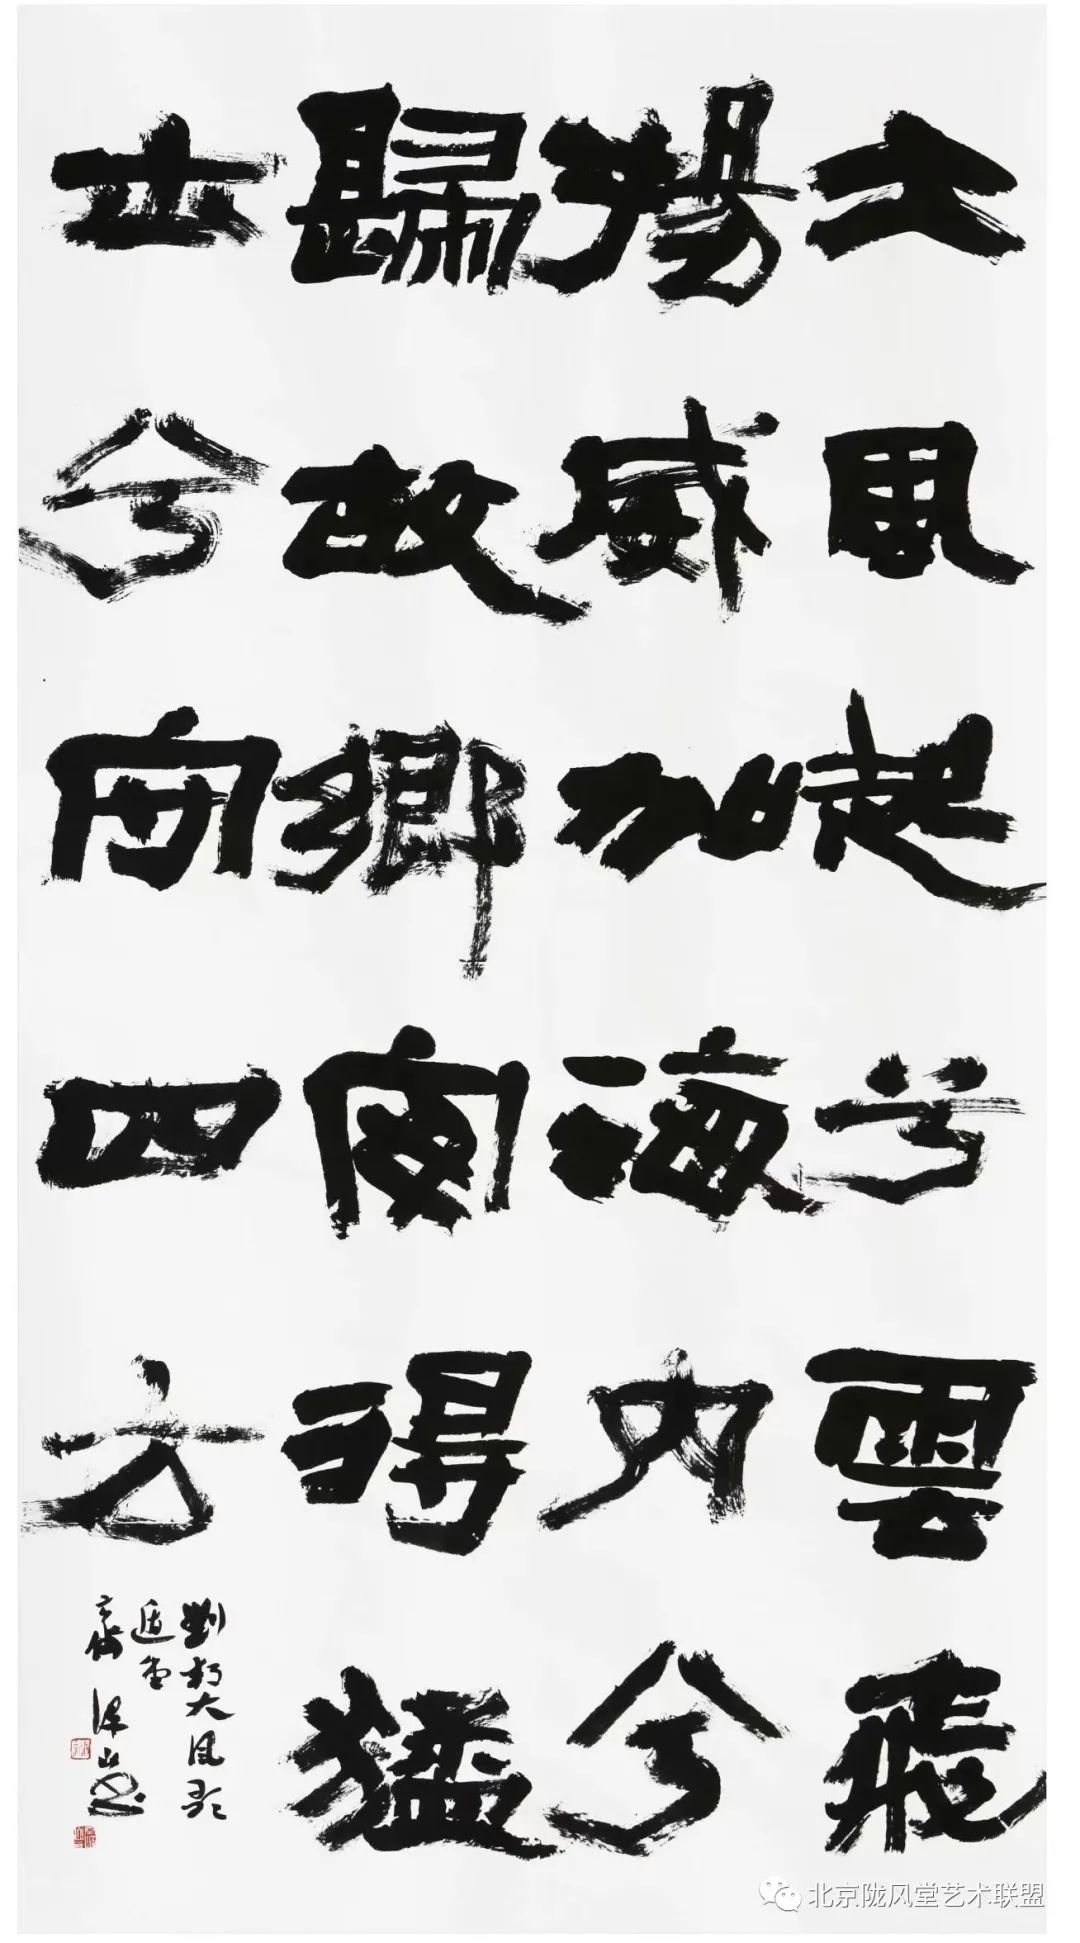 大風起兮雲飛
揚威加海内兮
歸故鄉安得猛
士兮守四方
劉邦大風歌
北京陇风堂艺术联盟